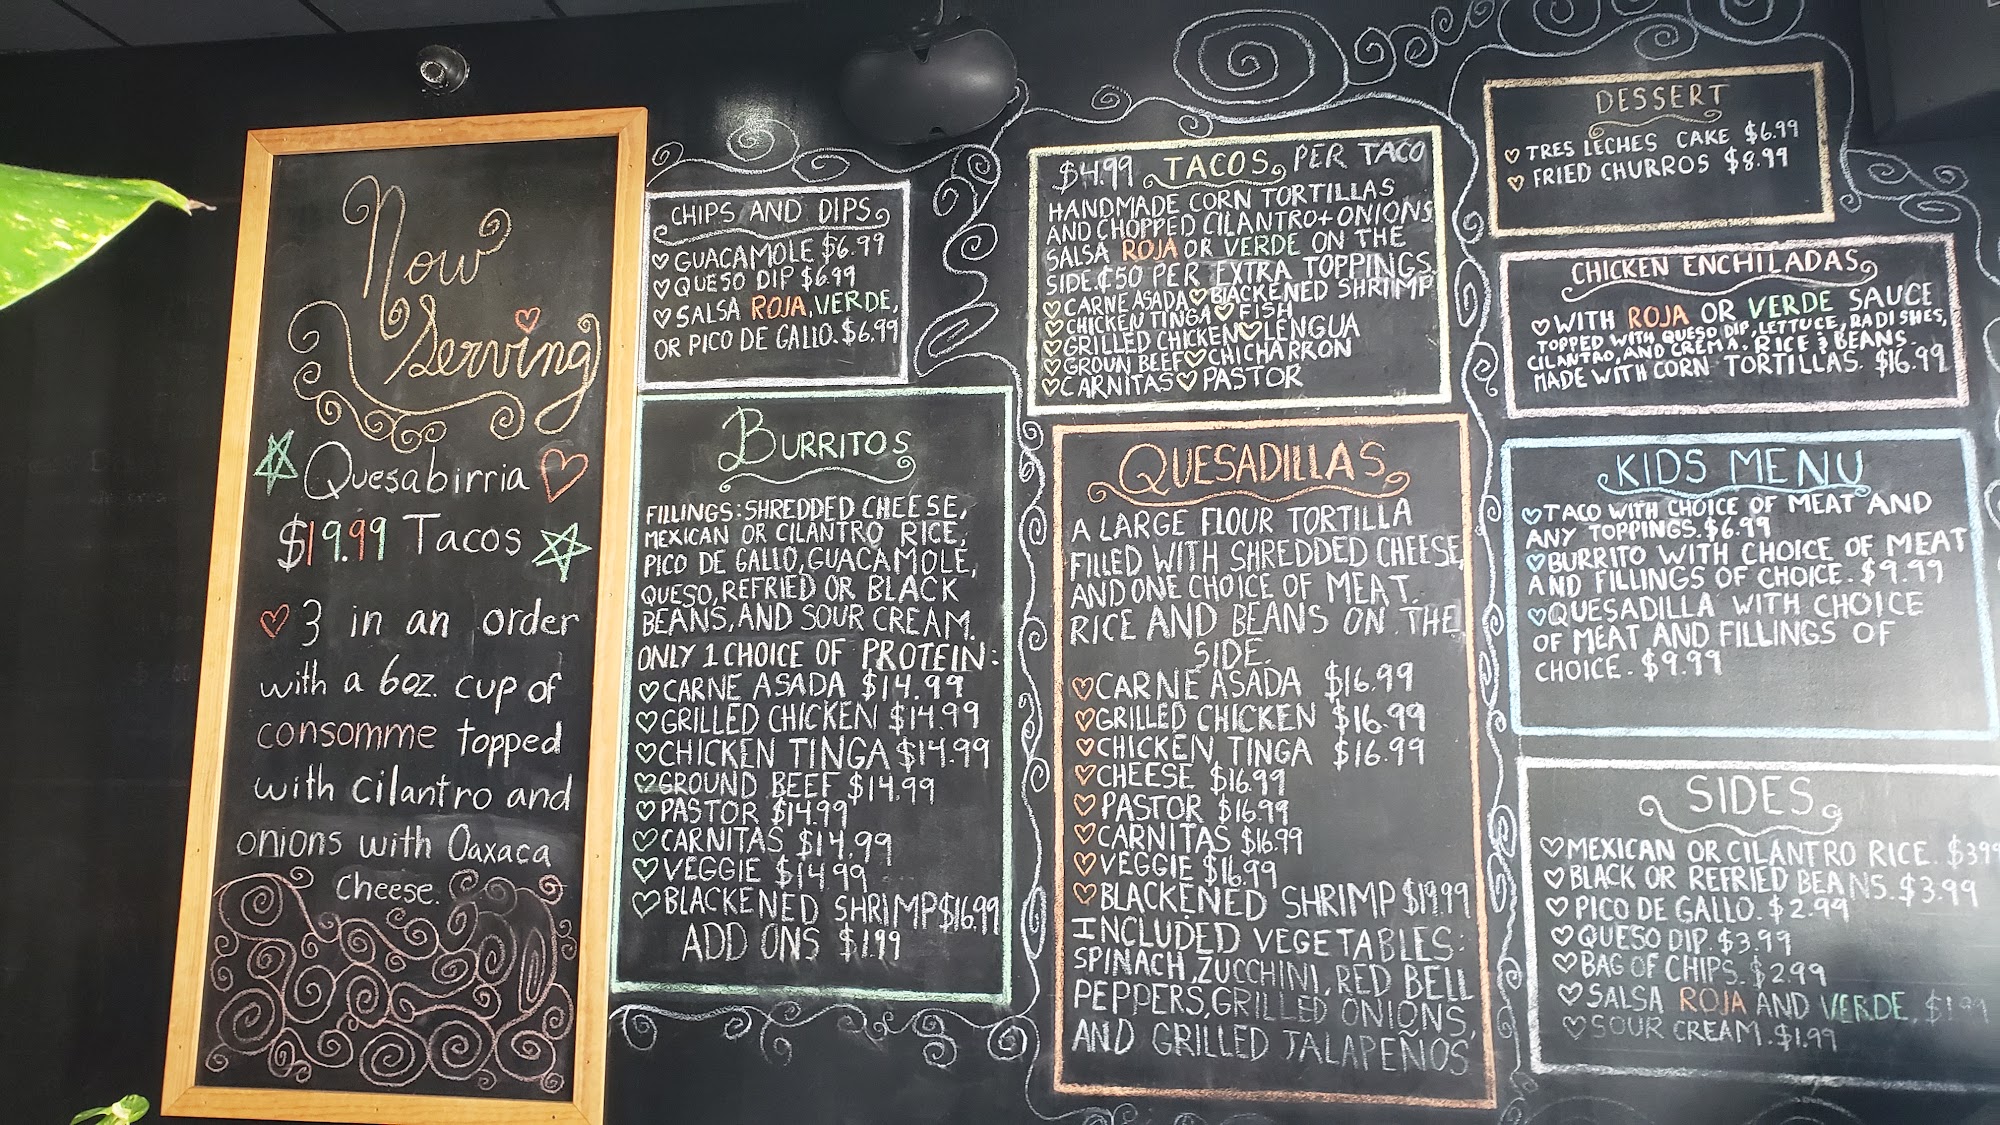 Now
Serving
Quesabirria
$19.99 Tacos
3 in an order
with a 6oz. cup of
consomme topped
with cilantro and
onions with Oaxaca
Cheese.
CHIPS AND DIPS
GUACAMOLE $6.99
QUESO DIP $6.99
SALSA ROJA, VERDE,
OR PICO DE GALLO. $6.99
BURRITOS
FILLINGS: SHREDDED CHEESE,
MEXICAN OR CILANTRO RICE,
PICO DE GALLO, GUACAMOLE,
QUESO, REFRIED OR BLACK
BEANS, AND SOUR CREAM.
ONLY 1 CHOICE OF PROTEIN:
CARNE ASADA $14.99
GRILLED CHICKEN $14.99
CHICKEN TINGA $14.99
GROUND BEEF $14.99
PASTOR $14.99
CARNITAS $14.99
VEGGIE $14.99
BLACKENED SHRIMP $16.99
ADD ONS $1.99
$4.99 TACOS PER TACO
HANDMADE CORN TORTILLAS
AND CHOPPED CILANTRO + ONIONS
SALSA ROJA OR VERDE ON THE
SIDE. ¢50 PER EXTRA TOPPINGS.
CARNE ASADA BLACKENED SHRIMP
CHICKEN TINGA FISH
GRILLED CHICKEN LENGUA
GROUN BEEF CHICHARRON
CARNITAS PASTOR
QUESADILLAS
A LARGE FLOUR TORTILLA
FILLED WITH SHREDDED CHEESE,
AND ONE CHOICE OF MEAT.
RICE AND BEANS ON THE
SIDE.
CARNE ASADA $16.99
GRILLED CHICKEN $16.99
CHICKEN TINGA $16.99
CHEESE $16.99
PASTOR $16.99
CARNITAS $16.99
VEGGIE $16.99
BLACKENED SHRIMP $19.99
INCLUDED VEGETABLES:
SPINACH, ZUCCHINI, RED BELL
PEPPERS, GRILLED ONIONS,
AND GRILLED JALAPENOS
DESSERT
TRES LECHES CAKE $6.99
FRIED CHURROS $8.99
CHICKEN ENCHILADAS
WITH ROJA OR VERDE SAUCE
TOPPED WITH QUESO DIP, LETTUCE, RADISHES,
CILANTRO, AND CREMA. RICE & BEANS.
MADE WITH CORN TORTILLAS. $16.99
KIDS MENU
TACO WITH CHOICE OF MEAT AND
ANY TOPPINGS. $6.99
BURRITO WITH CHOICE OF MEAT
AND FILLINGS OF CHOICE. $9.99
QUESADILLA WITH CHOICE
OF MEAT AND FILLINGS OF
CHOICE. $9.99
SIDES
MEXICAN OR CILANTRO RICE. $3.99
BLACK OR REFRIED BEANS. $3.99
PICO DE GALLO. $2.99
QUESO DIP. $3.99
BAG OF CHIPS. $2.99
SALSA ROJA AND VERDE. $1.99
SOUR CREAM. $1.99